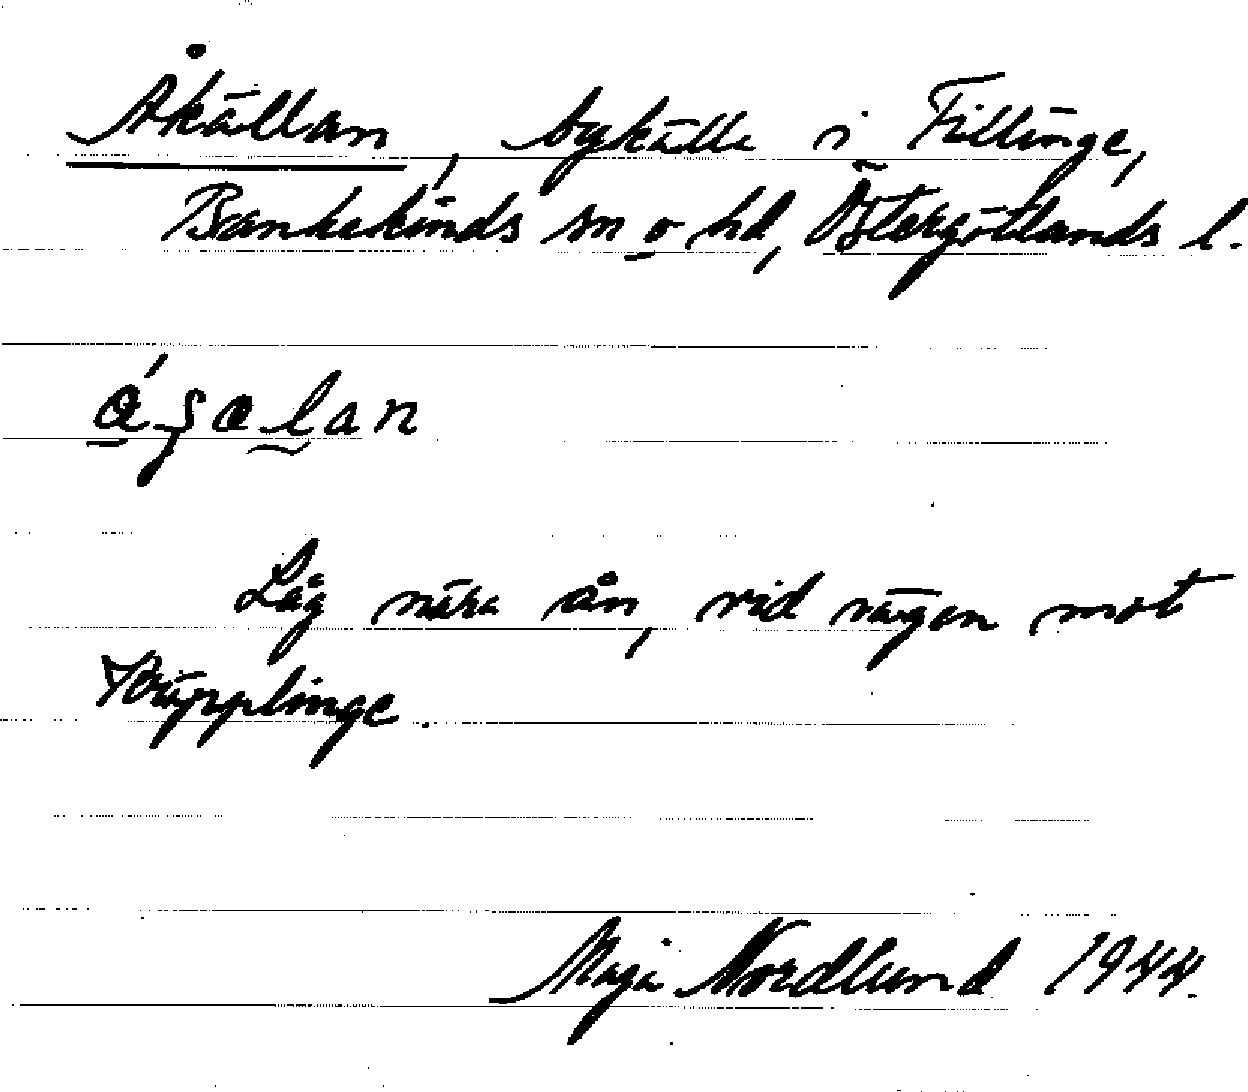 Åkällan, bykälla i Fillinge,
Bankekinds sn o hd, Östergötlands l.
Låg nära ån, vid vägen mot
Käpplinge.
Maja Nordlund 1944.